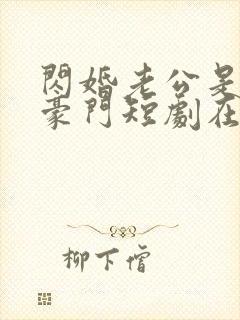 閃婚老公是
豪門短劇在
柳下僧